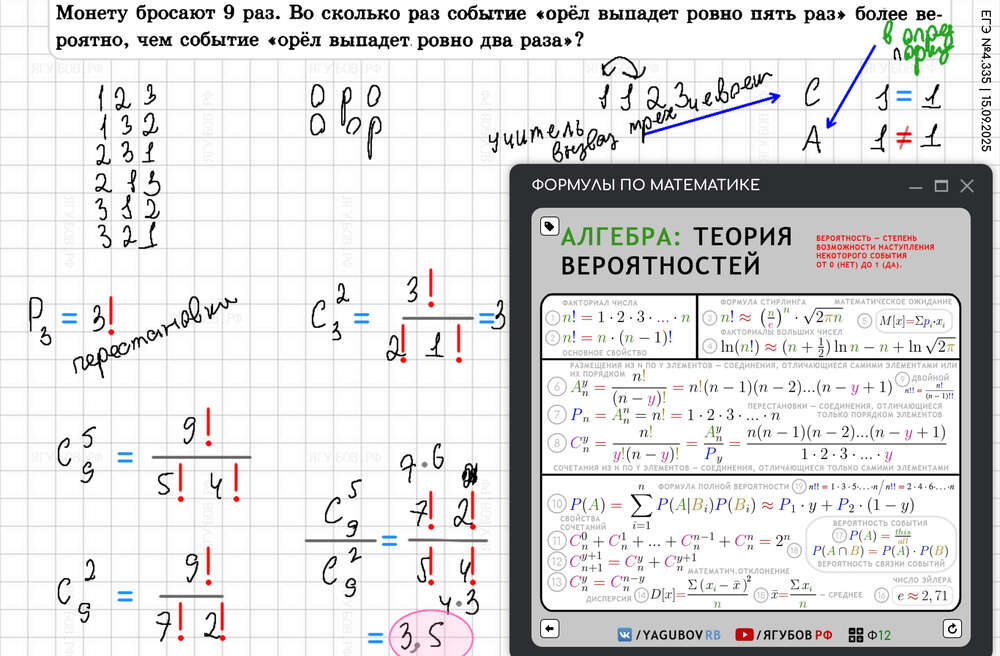 Монету бросают 9 раз. Во сколько раз событие «орёл выпадет ровно пять раз» более ве-
роятно, чем событие «орёл выпадет ровно два раза»?
ЕГЭ №4.335 | 15.09.2025
1 2 3
1 3 2
2 3 1
2 1 3
3 1 2
3 2 1
О Р О
О О Р
1 1 2 3
учитель
вызвал трёх
C 1 = 1
A 1 ≠ 1
P₃ = 3!
перестановки
C₃² = 3! / 2! 1! = 3
C₉⁵ = 9! / 5! 4!
C₉² = 9! / 7! 2!
7·6
C₉⁵ / C₉² = 7! 2! / 5! 4!
4·3
= 3,5
ФОРМУЛЫ ПО МАТЕМАТИКЕ
АЛГЕБРА: ТЕОРИЯ
ВЕРОЯТНОСТЕЙ
ВЕРОЯТНОСТЬ — СТЕПЕНЬ
ВОЗМОЖНОСТИ НАСТУПЛЕНИЯ
НЕКОТОРОГО СОБЫТИЯ
ОТ 0 (НЕТ) ДО 1 (ДА).
ФАКТОРИАЛ ЧИСЛА
1 n! = 1 · 2 · 3 · ... · n
2 n! = n · (n − 1)!
ОСНОВНОЕ СВОЙСТВО
ФОРМУЛА СТИРЛИНГА
3 n! ≈ (n/e)ⁿ · √2πn
ФАКТОРИАЛЫ БОЛЬШИХ ЧИСЕЛ
4 ln(n!) ≈ (n + 1/2) ln n − n + ln √2π
МАТЕМАТИЧЕСКОЕ ОЖИДАНИЕ
5 M[x]=Σpᵢ·xᵢ
РАЗМЕЩЕНИЯ ИЗ N ПО Y ЭЛЕМЕНТОВ — СОЕДИНЕНИЯ, ОТЛИЧАЮЩИЕСЯ САМИМИ ЭЛЕМЕНТАМИ ИЛИ
ИХ ПОРЯДКОМ
6 Aₙʸ = n! / (n − y)! = n!(n − 1)(n − 2)...(n − y + 1)
9 ДВОЙНОЙ
n!! = n! / (n−1)!!
ПЕРЕСТАНОВКИ — СОЕДИНЕНИЯ, ОТЛИЧАЮЩИЕСЯ
ТОЛЬКО ПОРЯДКОМ ЭЛЕМЕНТОВ
7 Pₙ = Aₙⁿ = n! = 1 · 2 · 3 · ... · n
8 Cₙʸ = n! / y!(n − y)! = Aₙʸ / P_y = n(n − 1)(n − 2)...(n − y + 1) / 1 · 2 · 3 · ... · y
СОЧЕТАНИЯ ИЗ N ПО Y ЭЛЕМЕНТОВ — СОЕДИНЕНИЯ, ОТЛИЧАЮЩИЕСЯ ТОЛЬКО САМИМИ ЭЛЕМЕНТАМИ
ФОРМУЛА ПОЛНОЙ ВЕРОЯТНОСТИ
19 n!! = 1·3·5·...·n / n!! = 2·4·6·...·n
10 P(A) = Σⁿᵢ₌₁ P(A|Bᵢ)P(Bᵢ) ≈ P₁ · y + P₂ · (1 − y)
СВОЙСТВА
СОЧЕТАНИЙ
11 Cₙ⁰ + Cₙ¹ + ... + Cₙⁿ⁻¹ + Cₙⁿ = 2ⁿ
12 Cₙ₊₁ʸ⁺¹ = Cₙʸ + Cₙʸ⁺¹
13 Cₙʸ = Cₙⁿ⁻ʸ
ВЕРОЯТНОСТЬ СОБЫТИЯ
17 P(A) = this/all
18 P(A ∩ B) = P(A) · P(B)
ВЕРОЯТНОСТЬ СВЯЗКИ СОБЫТИЙ
МАТЕМАТИЧ.ОТКЛОНЕНИЕ
ДИСПЕРСИЯ 14 D[x]= Σ(xᵢ − x̄)² / n
15 x̄= Σxᵢ / n — СРЕДНЕЕ
ЧИСЛО ЭЙЛЕРА
16 e ≈ 2,71
/YAGUBOVRB /ЯГУБОВ.РФ Ф12